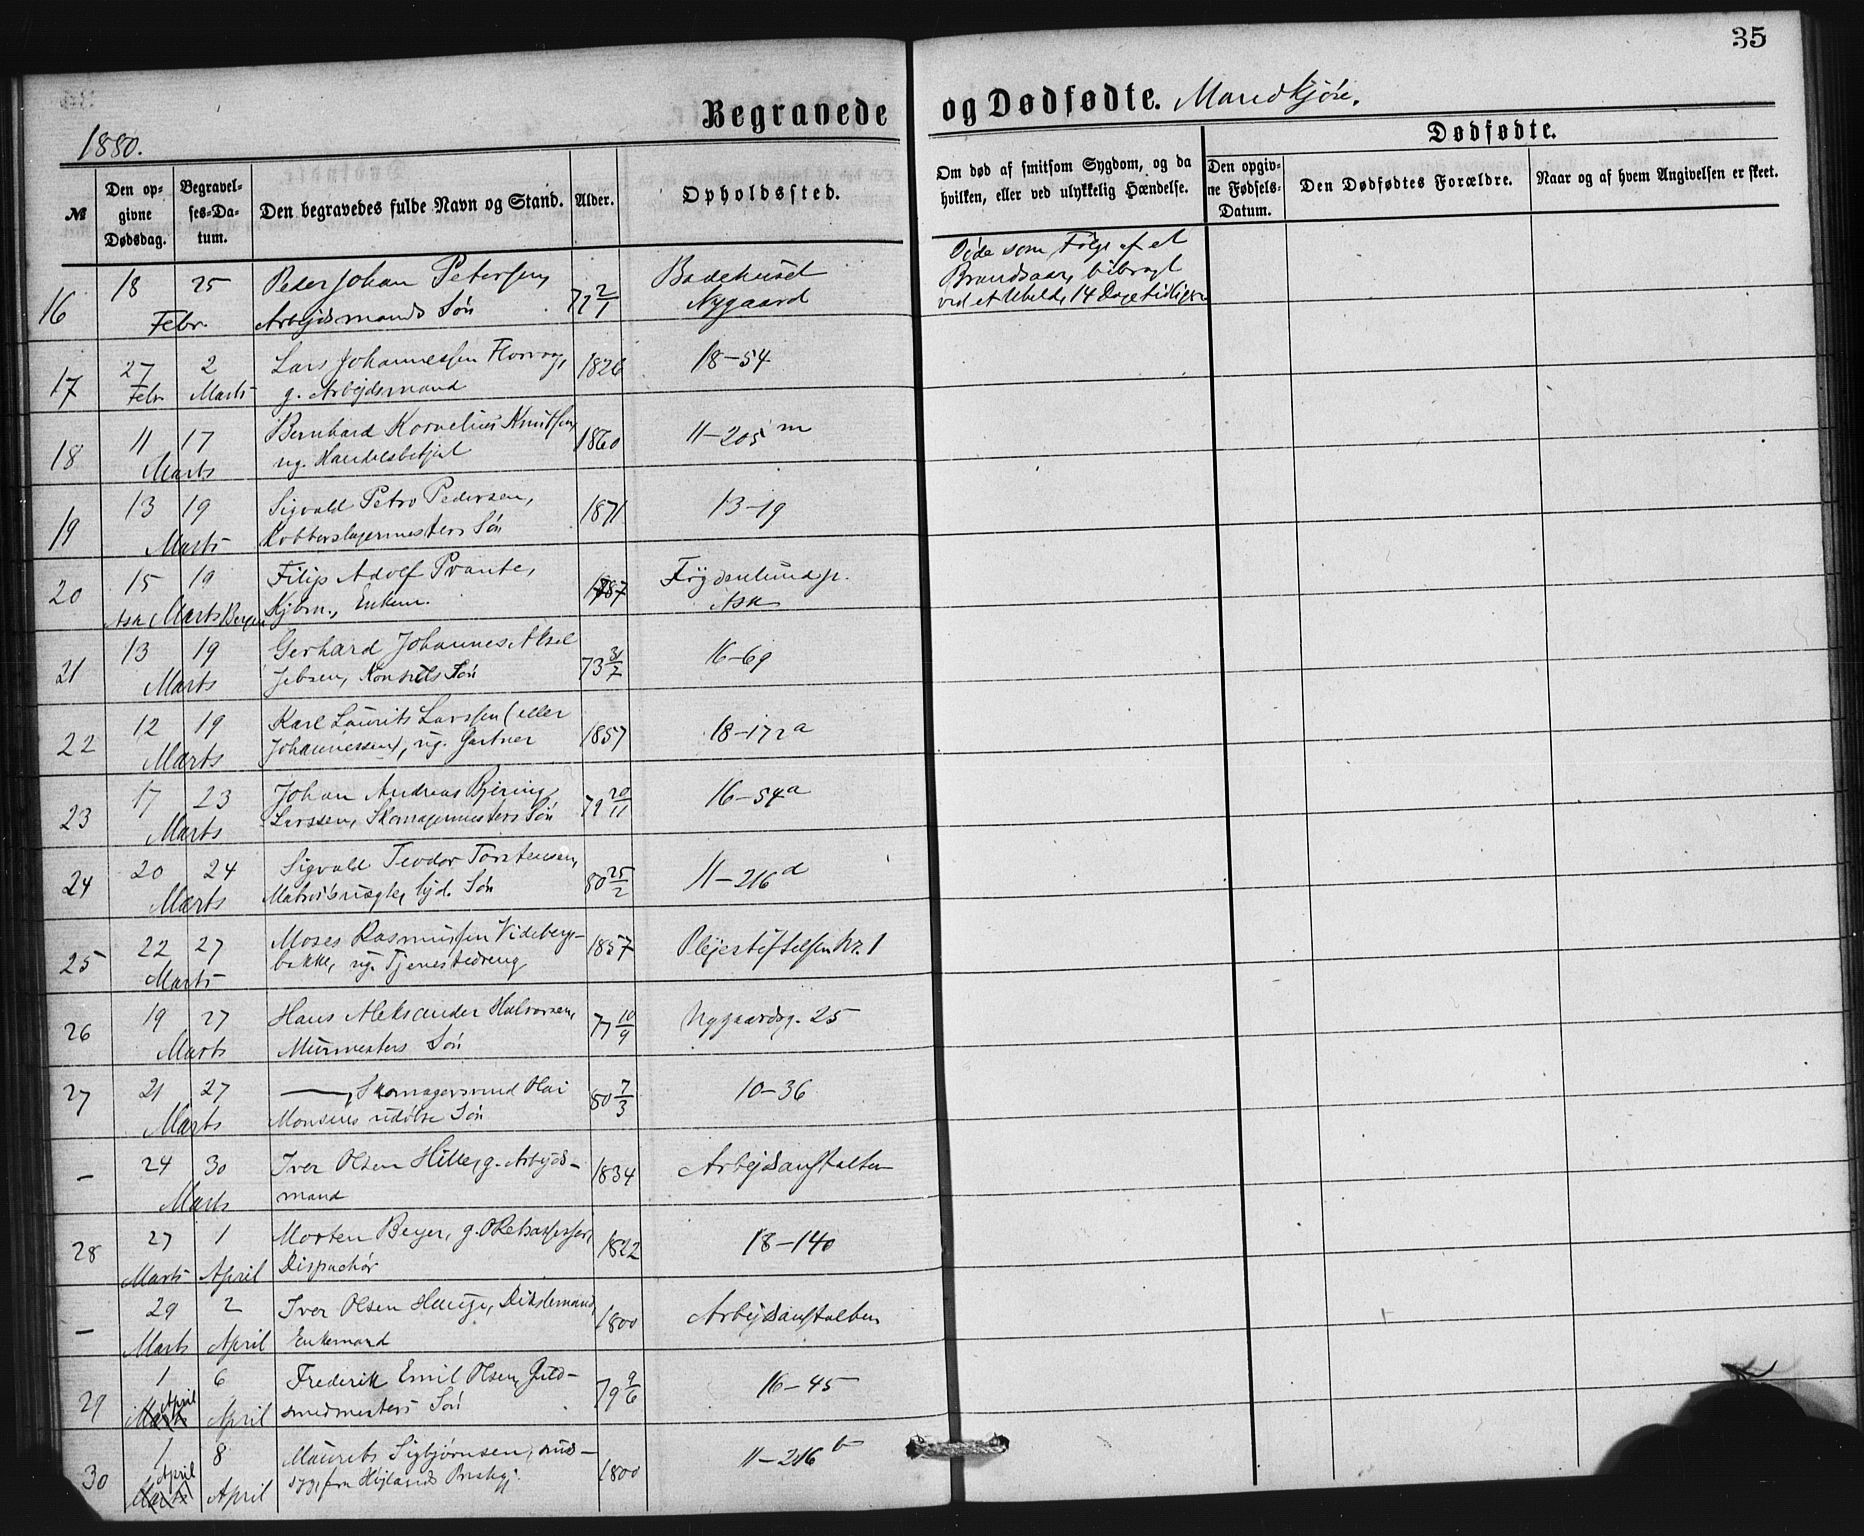 35
Begravede og Dødfødte. Mandkjøn.
1880.
Dødfødte.
№
Den opgivne Dødsdag.
Begravelses-Datum.
Den begravedes fulde Navn og Stand.
Alder.
Opholdssted.
Om død af smitsom Sygdom, og da hvilken, eller ved ulykkelig Hændelse.
Den opgivne Fødsels-Datum.
Den Dødfødtes Forældre.
Naar og af hvem Angivelsen er skeet.
16 18 25 Febr. Peder Johan Petersen, Arbejdsmands Søn 77 2/1 Badehuset Nygaard Døde som Følge af et Brandsaar, bibragt ved et Uheld, 14 Dage tidligere
17 27 Febr 2 Marts Lars Johannessen Florvag, g. Arbejdsmand 1826 18-54
18 11 17 Marts Bernhard Kornelius Knutsen, ug. Handelsbetjent 1860 11-205 m
19 13 19 Marts Sigvald Petro Pedersen, Kobberslagermesters Søn 1871 13-19
20 15 19 Ask Marts Bergen Filip Adolf Prante, Kjbm., Enkem. Ask
21 13 19 Marts Gerhard Johannes Aksel Jebsen, Konsuls Søn 73 31/7 16-69
22 12 19 Marts Karl Laurits Larssen (eller Johannessen), ug. Gartner 1857 18-172 a
23 17 23 Marts Johan Andreas Bjering Larssen, Skomagermesters Søn 79 20/11 16-54 a
24 20 24 Marts Sigvald Teodor Torstensen, Søn 80 25/2 11-216 d
25 22 27 Marts Moses Rasmussen Videbergsbakke, ug. Tjenestedreng 1857 Plejestiftelsen Nr. 1
26 19 27 Marts Hans Aleksander Halvorsen, Murmesters Søn 77 10/9 Nygaardsg. 25
27 21 27 Marts —, Skomagersvend Olai Monsens udøbte Søn 80 7/3 10-36
– 24 30 Marts Iver Olsen Hille, g. Arbejdsmand 1834 Arbejdsanstalten
28 27 Marts 1 April Morten Beyer, g. ORetssagfører, Dispachør 1822 18-140
– 29 Marts 2 April Iver Olsen Hauge, Enkemand 1800 Arbejdsanstalten
29 1 April Marts 6 April Frederik Emil Olsen, Guldsmedmesters Søn 79 9/6 16-45
30 1 April Marts 8 April Maurits Sigbjørnsen, sindssyg, fra Højlands Prestgj. 1800 11-216 b